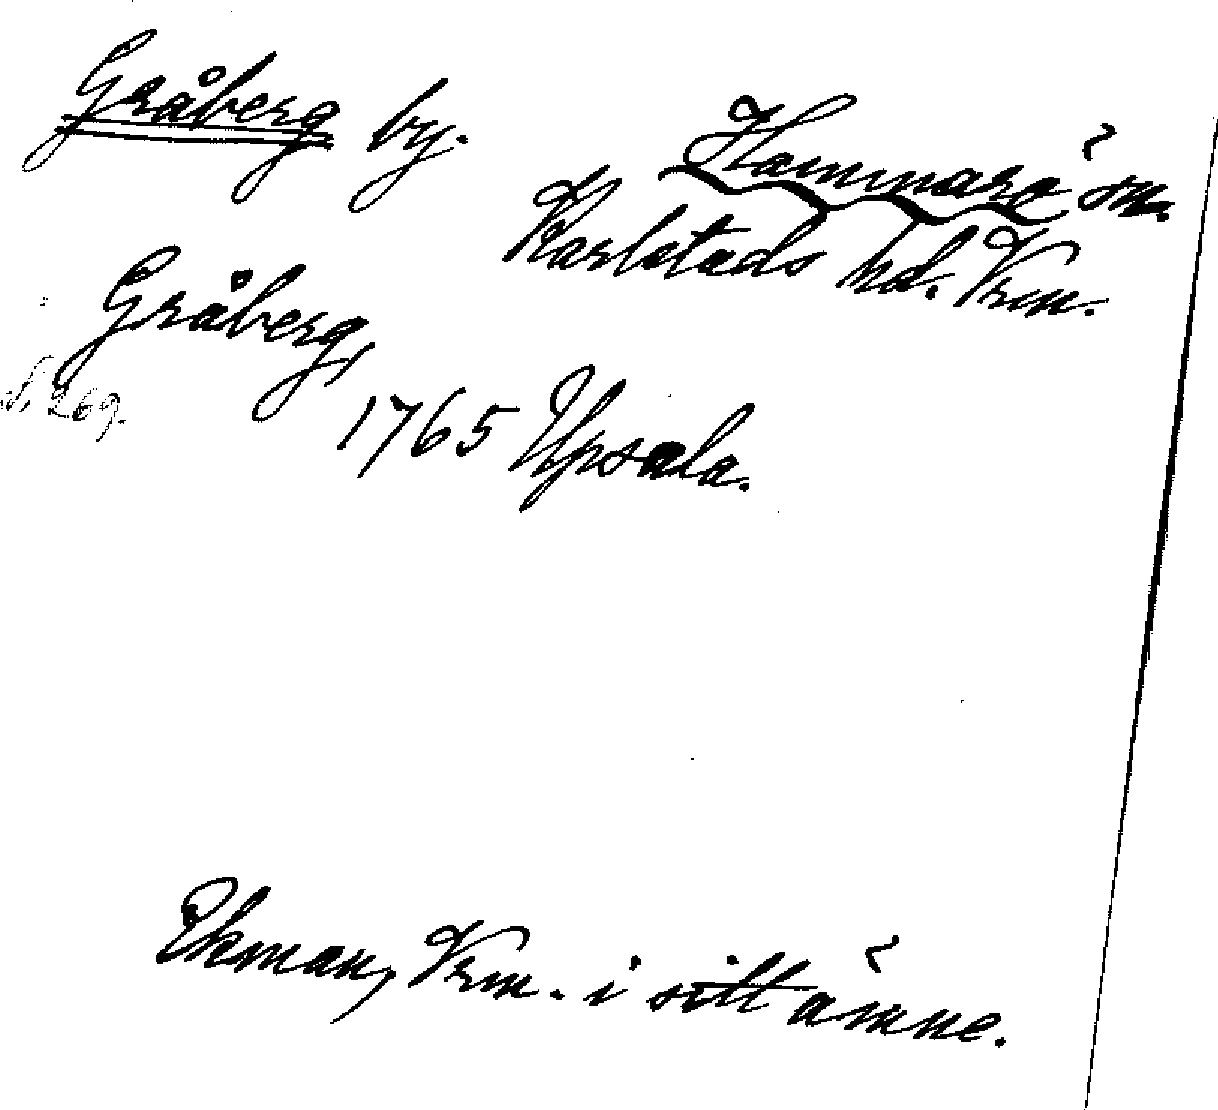 Gråberg by.
Hammarö sn.
Karlstads hd. Vrm.
Gråberg,
s. 269.
1765 Upsala.
Ekman, Vrm. i sitt ämne.